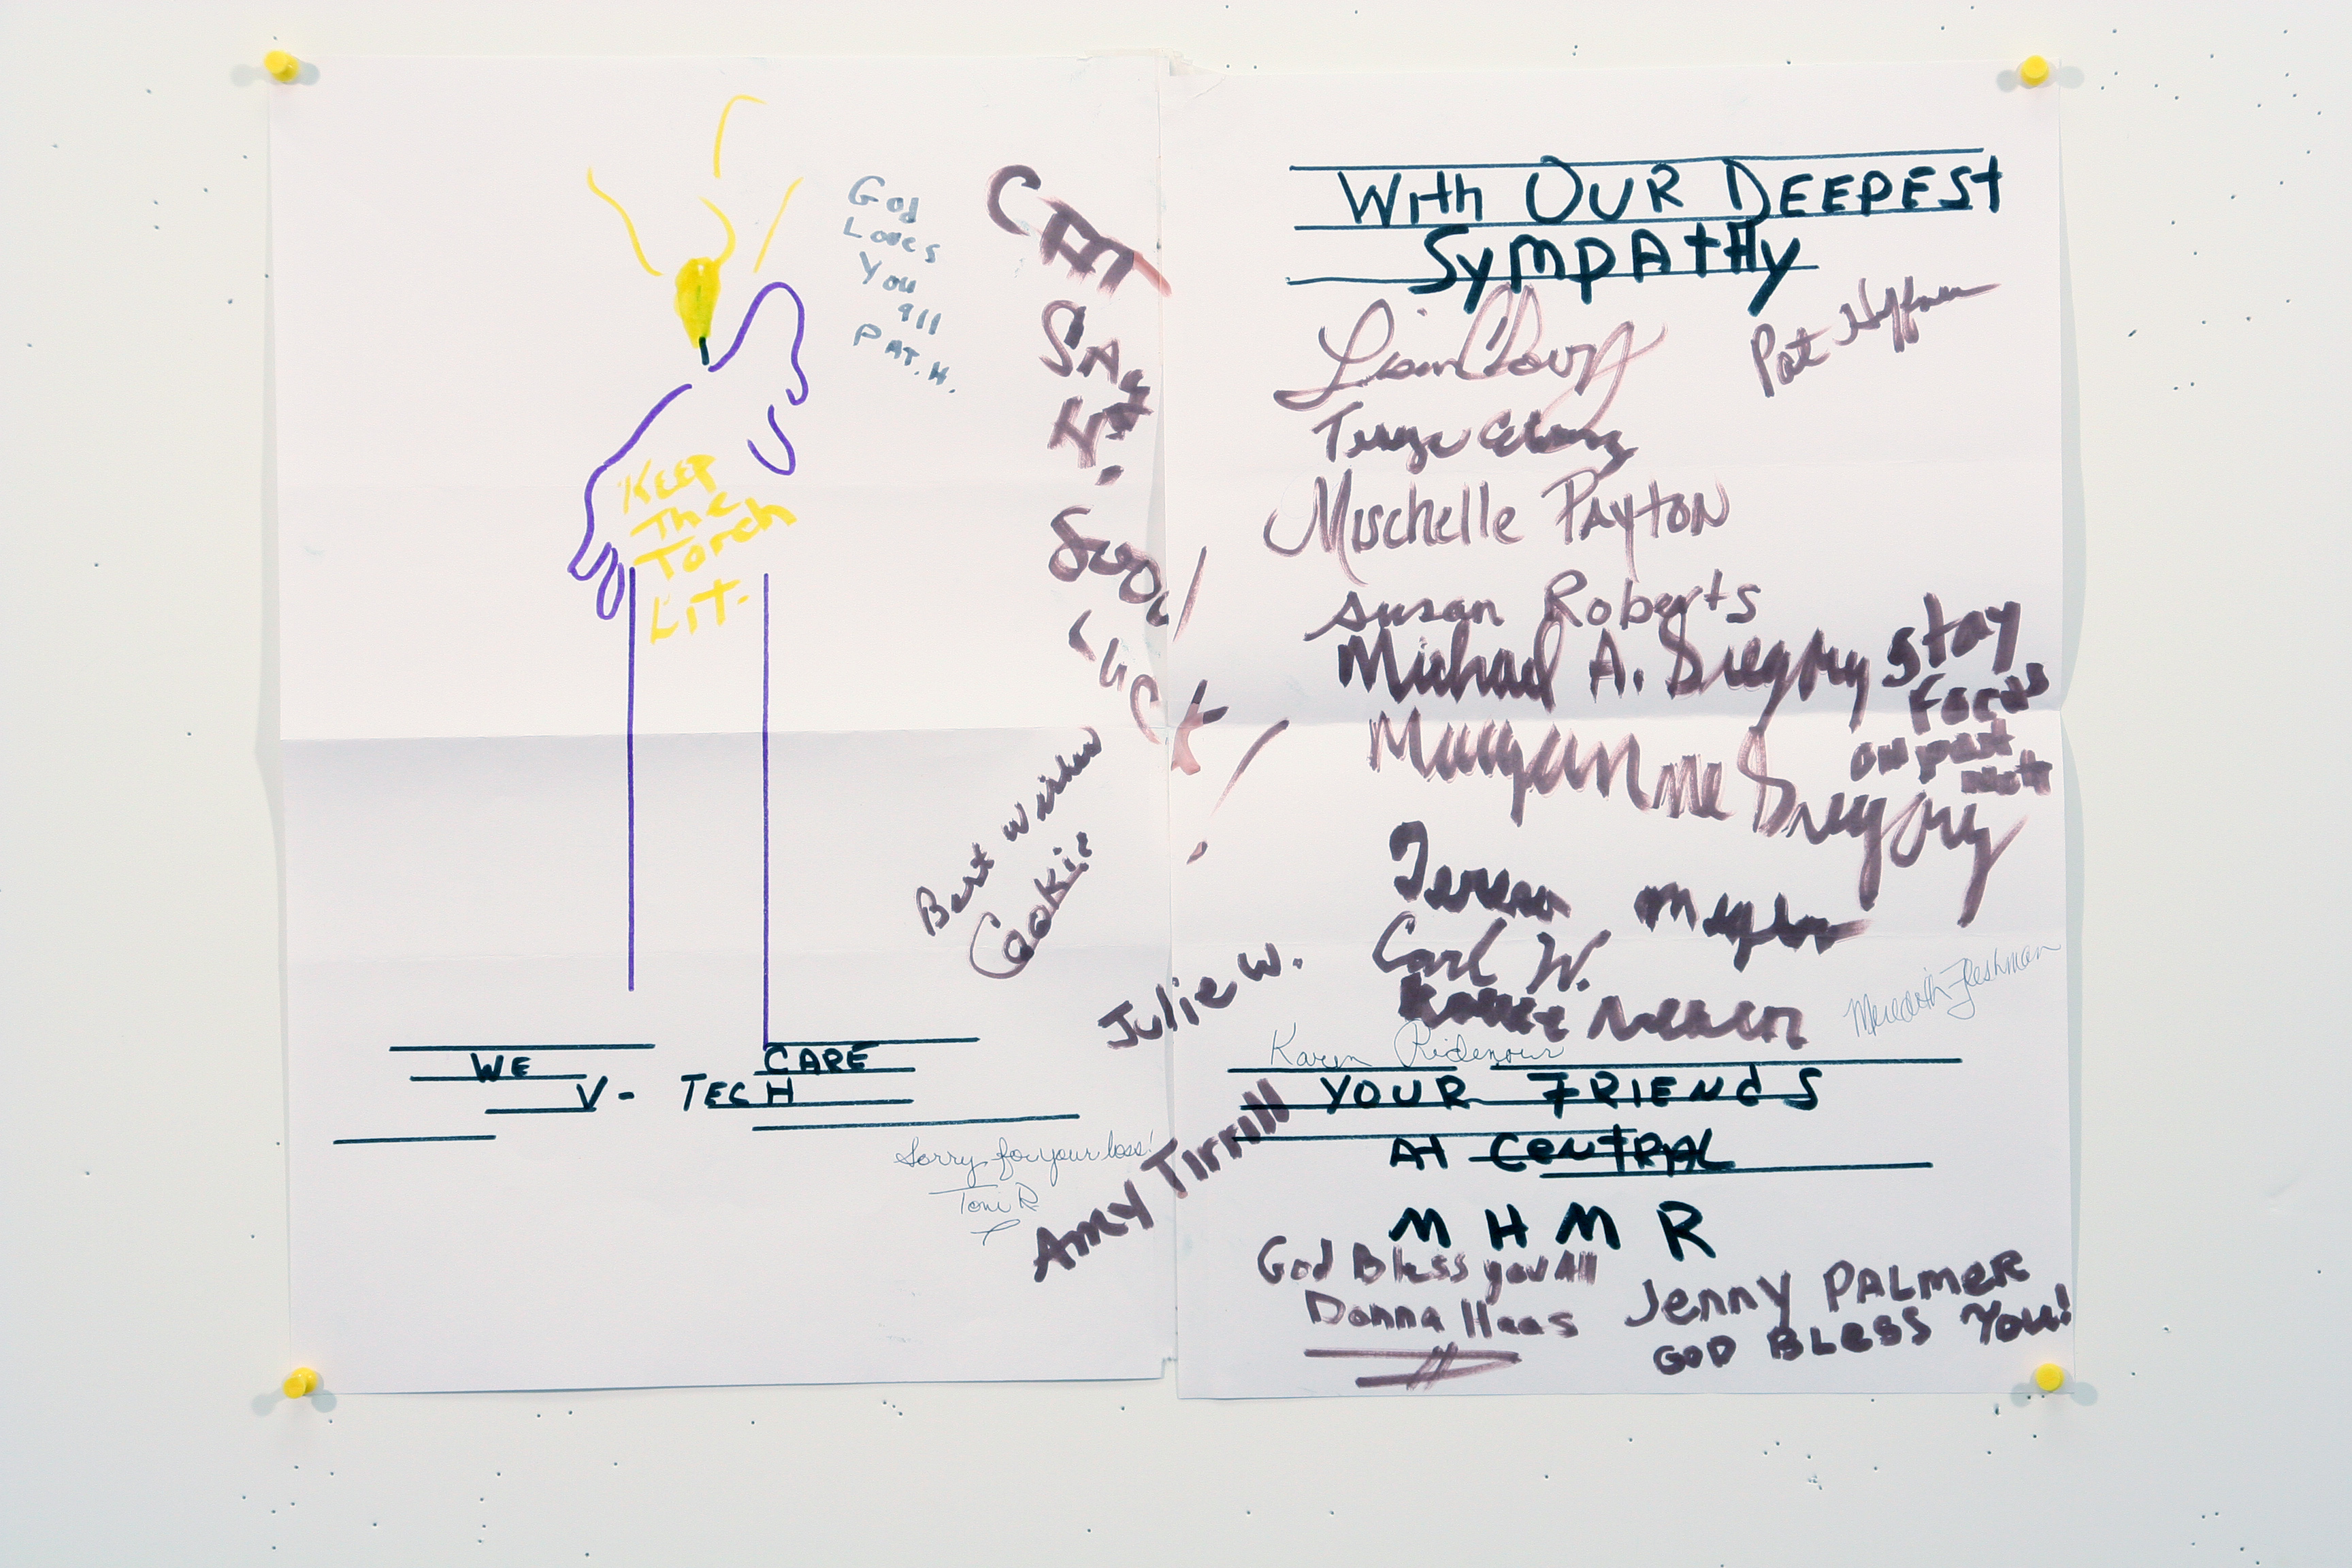 God
Loves
You
all
PAT. H.
KEEP
The
Torch
LiT.
Good
Luck!
Best wishes
Cookie
WE CARE
V- TECH
Sorry for your loss!
Toni R
With OUR DEEPESt
SyMPAtHy
Pat
Mischelle PAYTON
Susan Roberts
Michael A. Gregory
Stay
Focus
on past
Gregory
Teresa
Carl W.
Julie W.
Meredith Fleshman
Karen Ridenour
YOUR FRIENdS
At CeNtRAL
M H M R
Amy Tirrill
God Bless you All
Donna Haas
Jenny PALMER
GOD BLeSS You!